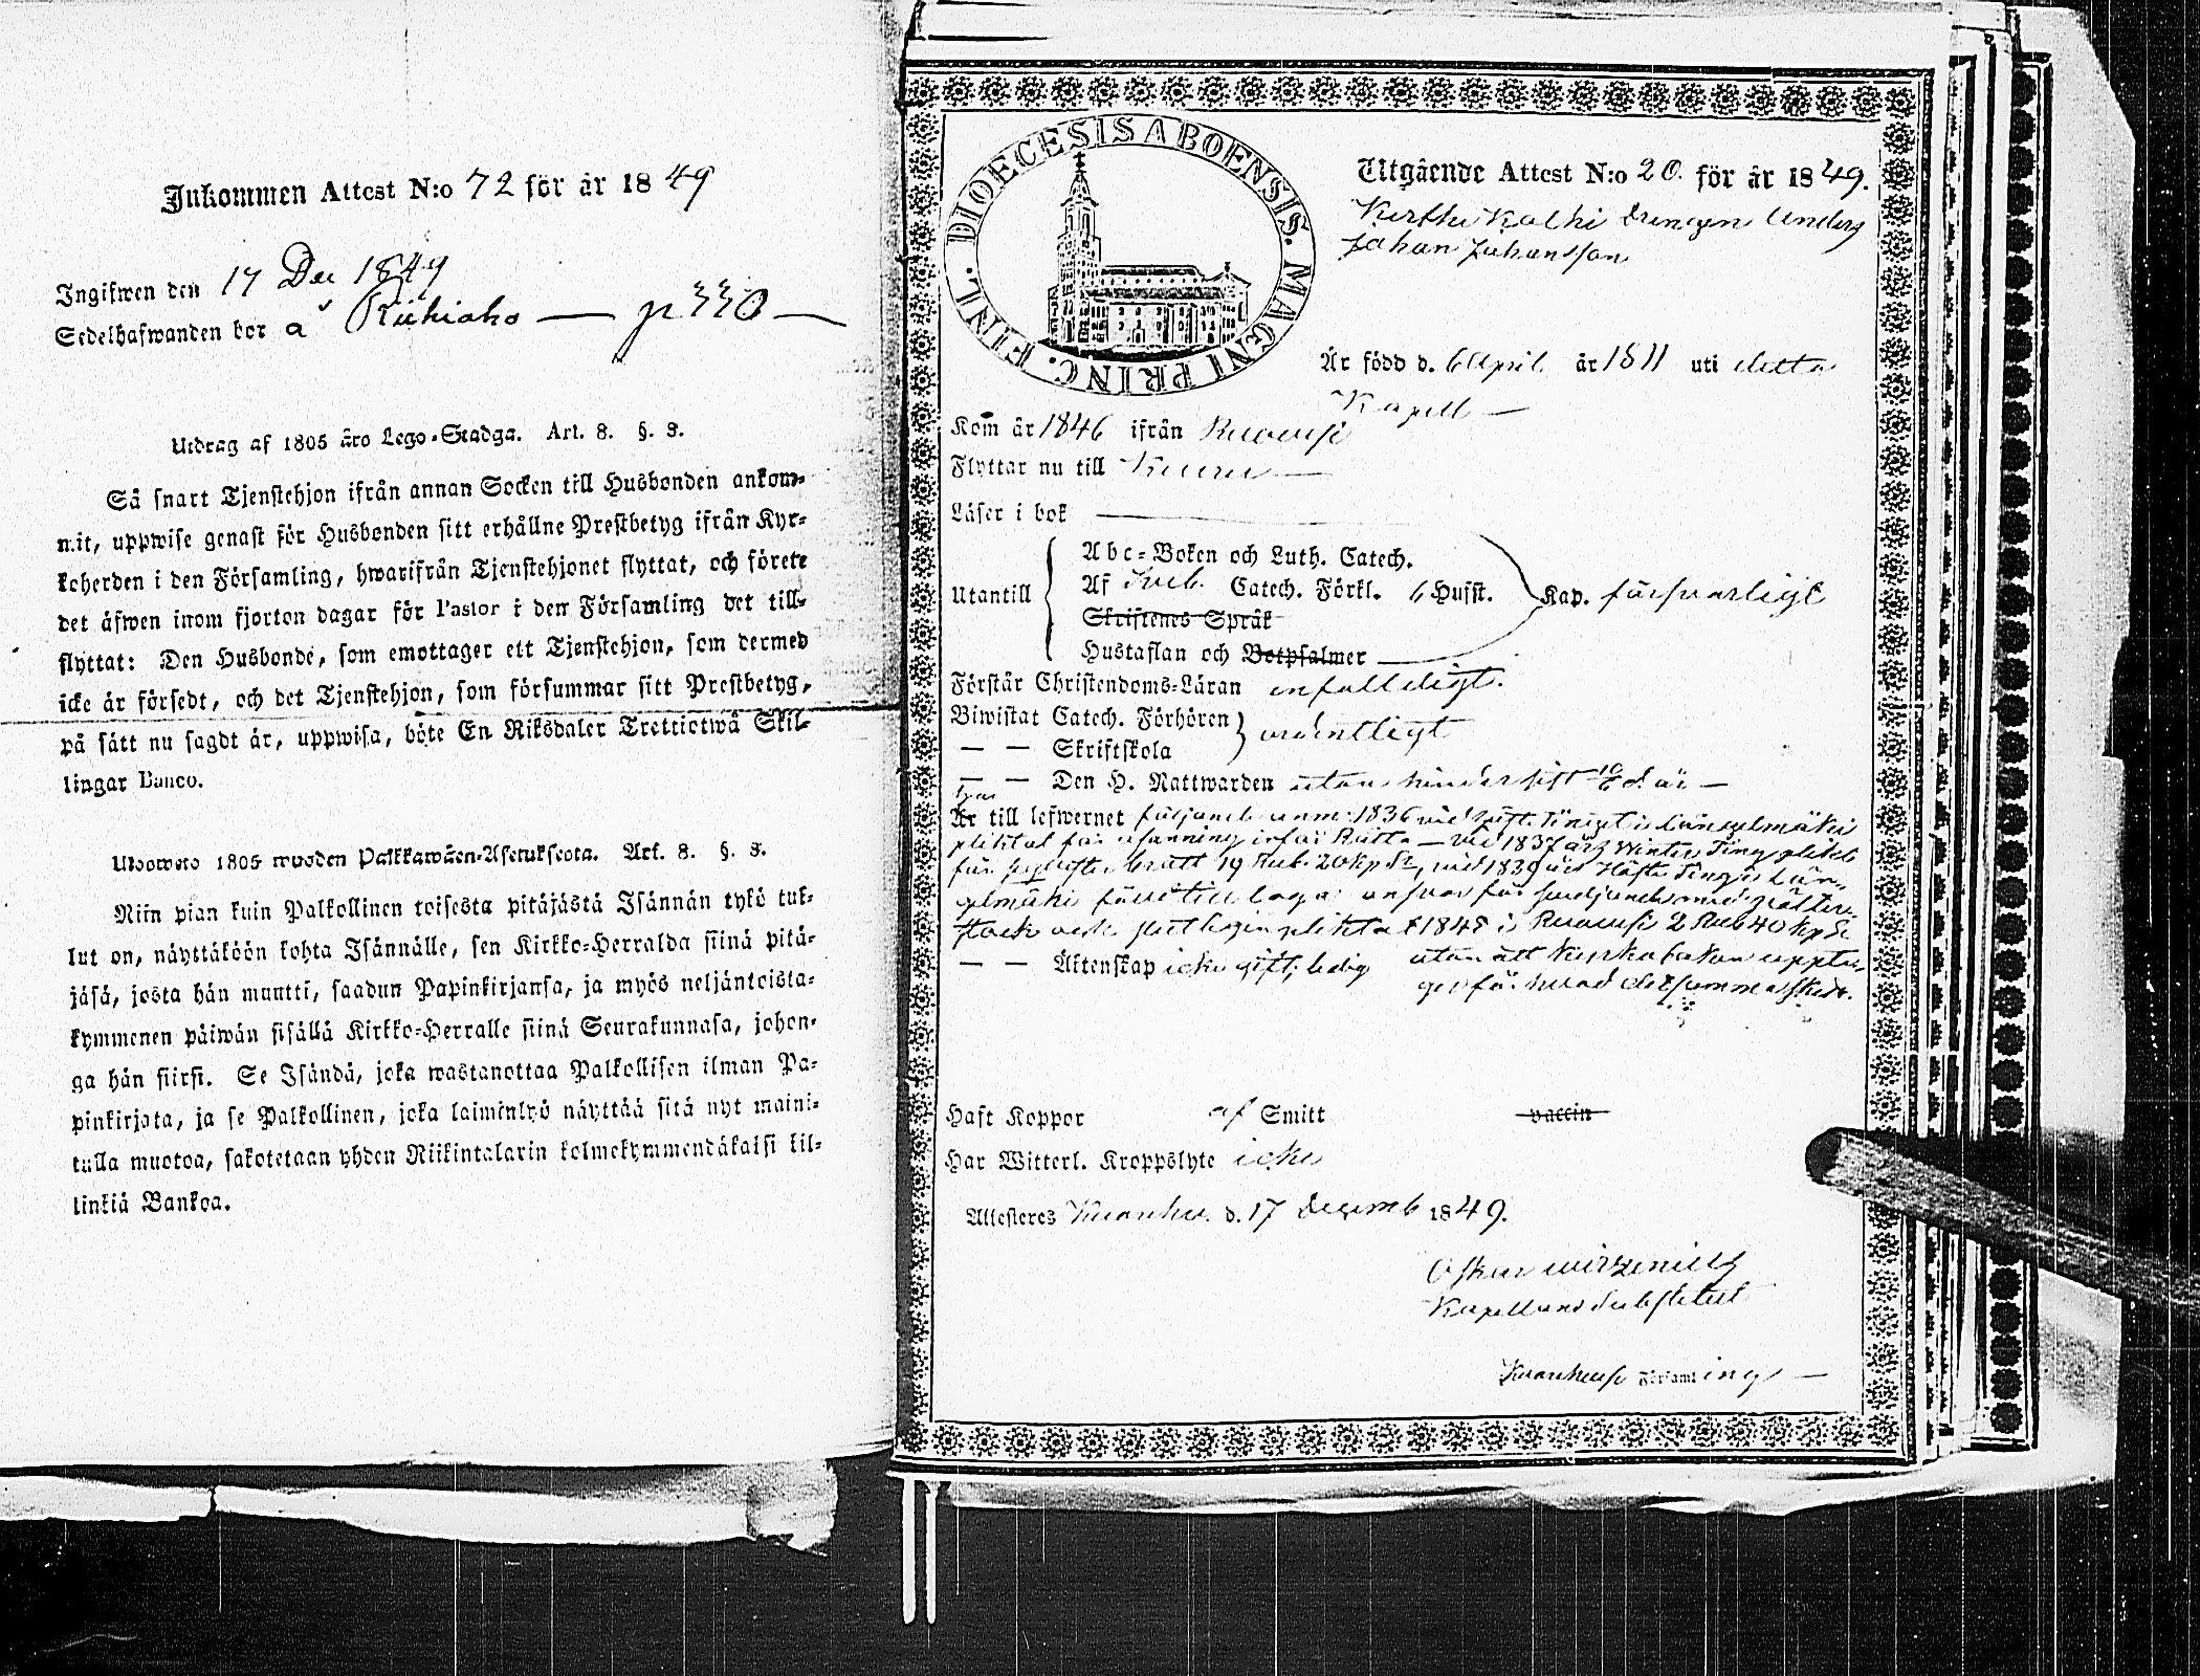 Inkommen Attest N:o 72 för år 1849
Ingifwen den 17 Dec 1849
Sedelhafwanden bor å Riihiaho — p 330 —
Utdrag af 1805 åro Lego-Stadga. Art. 8. §. 3.
Så snart Tjenstehjon ifrån annan Socken till Husbonden ankom-
mit, uppwise genast för Husbonden sitt erhållne Prestbetyg ifrån Kyr-
koherden i den Församling, hwarifrån Tjenstehjonet flyttat, och förete
det äfwen inom fjorton dagar för Pastor i den Församling det till-
flyttat: Den Husbonde, som emottager ett Tjenstehjon, som dermed
icke är försedt, och det Tjenstehjon, som försummar sitt Prestbetyg,
på sätt nu sagdt är, uppwisa, böte En Riksdaler Trettiotwå Skil-
lingar Banco.
Ulosweto 1805 wuoden Palkkawäen-Asetuksesta. Art. 8. §. 3.
Niin pian kuin Palkollinen toisesta pitäjästä Isännän tykö tul-
lut on, näyttäköön kohta Isännälle, sen Kirkko-Herralda siinä pitä-
jäsä, josta hän muutti, saadun Papinkirjansa, ja myös neljäntoista-
kymmenen päiwän sisällä Kirkko-Herralle siinä Seurakunnasa, johon-
ga hän siirsi. Se Isändä, joka wastanottaa Palkollisen ilman Pa-
pinkirjata, ja se Palkollinen, joka laiminlyö näyttää sitä nyt maini-
tulla muotoa, sakotetaan yhden Riikintalarin kolmekymmendäkaksi kil-
linkiä Bankoa.
DIOECESIS ABOENSIS. MAGNI PRINC. FINL.
Utgående Attest N:o 20. för år 1849.
drengen Anders
Johan Johansson
Är född d. 6 April år 1811 uti detta
Kapell —
Kom år 1846 ifrån Ruovesi
Flyttar nu till Kuru —
Läser i bok
Utantill
Abc-Boken och Luth. Catech.
Af Sveb. Catech. Förkl. 6 Husst. Kap. försvarligt
Skriftenes Språk
Hustaflan och Botpsalmer
Förstår Christendoms-Läran enfalldigt.
Biwistat Catech. Förhören
— — Skriftskola
ordentligt
— — Den H. Nattwarden utan hinder sist 10/6 d. år —
Är till lefwernet följande anm: 1836 vid Höste Tinget i Längelmäki
pliktat för inför Rätta — vid 1837 års Winter Ting plikt
för brått 19 Rub. 20 kp Sr, vid 1839 års Höste Ting i Län-
gelmäki
1845 i Ruovesi 2 Rub 40 kp Sr
utan att Kyrkoboken uppta-
ger för hvad detsamma skedt.
— — Äktenskap icke gift; ledig
Haft Koppor af Smitt vaccin
Har Witterl. Kroppslyte icke
Attesteres Kuorehv. d. 17 Decemb 1849.
Oskar Wirzenius
Kapellans Substitut
Kuorehvesi Församling —